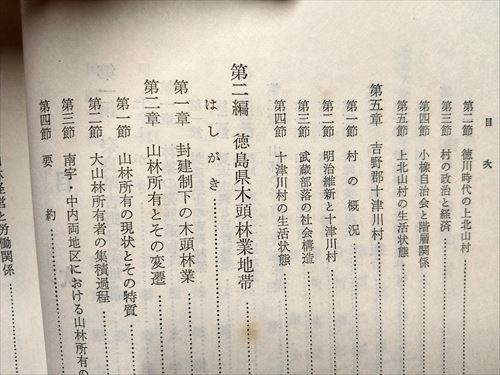 目次
第二節 徳川時代の上北山村
第三節 村の政治と経済
第四節 小橡自治会と階層関係
第五節 上北山村の生活状態
第五章 吉野郡十津川村
第一節 村の概況
第二節 明治維新と十津川村
第三節 武蔵部落の社会構造
第四節 十津川村の生活状態
第二編 徳島県木頭林業地帯
はしがき
第一章 封建制下の木頭林業
第二章 山林所有とその変遷
第一節 山林所有の現状とその特質
第二節 大山林所有者の集積過程
第三節 南宇・中内両地区における山林所有の
第四節 要約
経営と労働関係